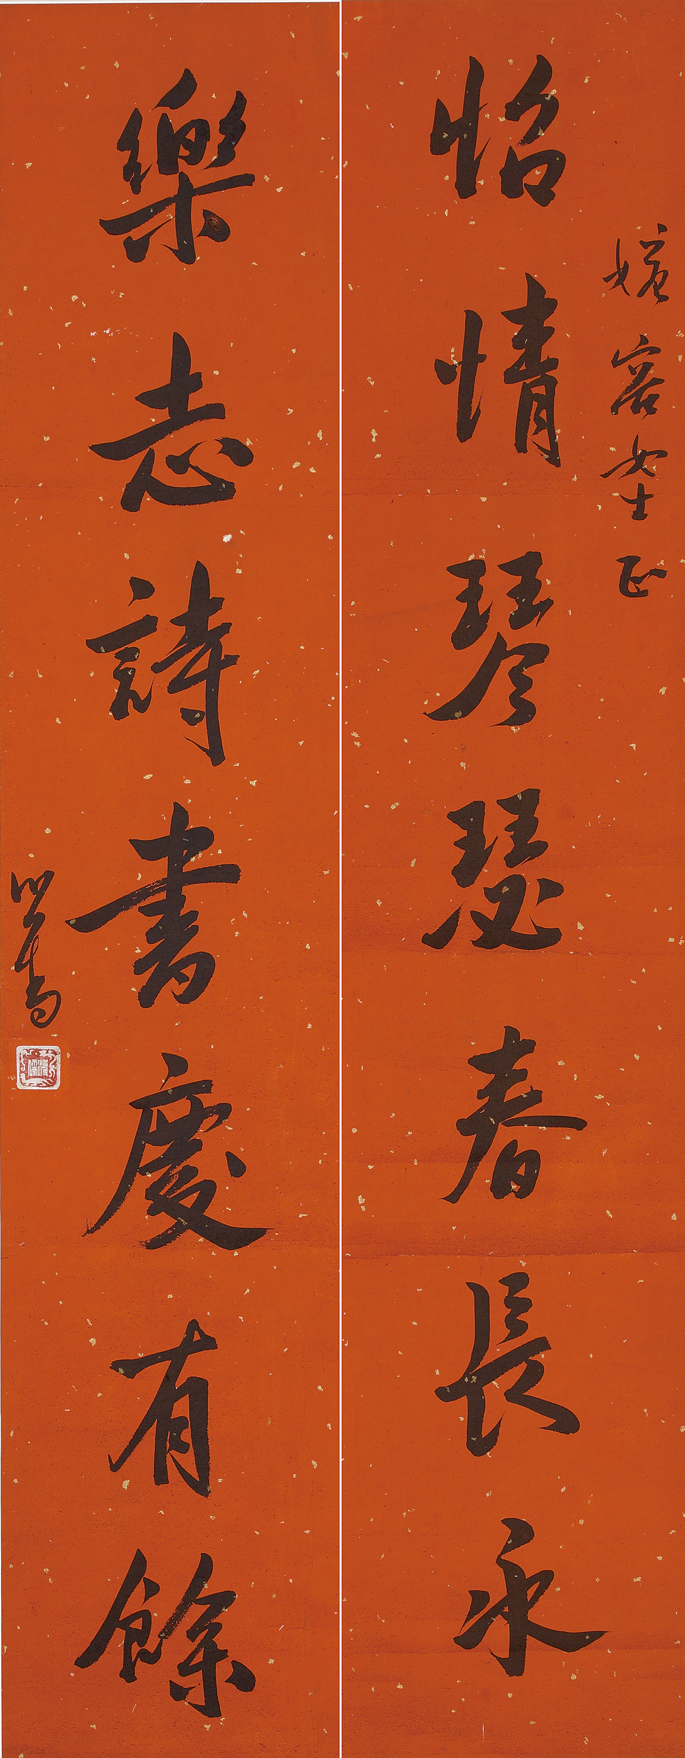 容女士正
怡情琴瑟春長永
樂志詩書慶有餘
溥儒